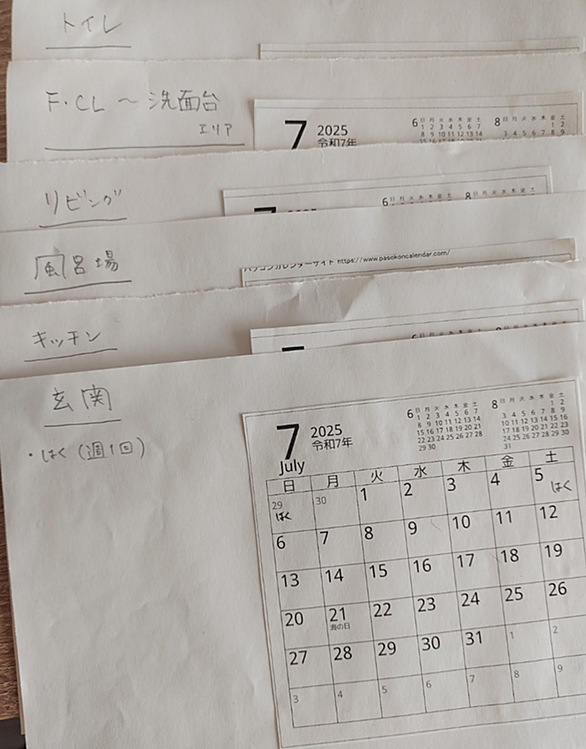 トイレ
F・CL 〜 洗面台
エリア
7 2025
令和7年
6 日 月 火 水 木 金 土
1 2 3 4 5 6 7
8 9 10 11 12 13 14
8 日 月 火 水 木 金 土
1 2
3 4 5 6 7 8 9
リビング
7
6 日 月 火 水 木 金 土
8 日 月 火 水 木 金 土
風呂場
パソコンカレンダーサイト https://www.pasokoncalendar.com/
キッチン
玄関
・はく(週1回)
7 2025
令和7年
July
6 日 月 火 水 木 金 土
1 2 3 4 5 6 7
8 9 10 11 12 13 14
15 16 17 18 19 20 21
22 23 24 25 26 27 28
29 30
8 日 月 火 水 木 金 土
1 2
3 4 5 6 7 8 9
10 11 12 13 14 15 16
17 18 19 20 21 22 23
24 25 26 27 28 29 30
31
日 月 火 水 木 金 土
29 30 1 2 3 4 5
はく はく
6 7 8 9 10 11 12
13 14 15 16 17 18 19
20 21 22 23 24 25 26
海の日
27 28 29 30 31 1 2
3 4 5 6 7 8 9